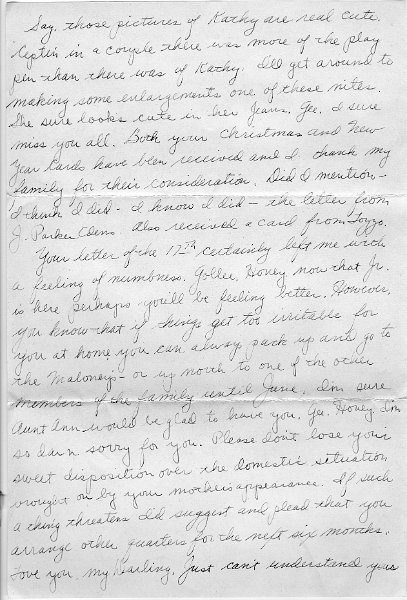 Say, those pictures of Kathy are real cute.
'Ceptin in a couple there was more of the play
pen than there was of Kathy. I'll get around to
making some enlargements one of these nites.
She sure looks cute in her jeans. Gee, I sure
miss you all. Both your Christmas and New
Year Cards have been received and I thank my
family for their consideration. Did I mention -
I think I did - I know I did - the letter from
J. Parker Clens. Also received a card from
Your letter of the 17th certainly left me with
a feeling of numbness. Gollee, Honey now that Jr.
is here perhaps you'll be feeling better. However,
you know that if things get too irritable for
you at home you can always pack up and go to
the Maloneys - or up north to one of the other
members of the family until June. I'm sure
Aunt Ann would be glad to have you. Gee, Honey I'm
so darn sorry for you. Please don't lose your
sweet disposition over the domestic situation
wrought on by your mother's appearance. If such
a thing threatens I'd suggest and plead that you
arrange other quarters for the next six months.
Love you, my Darling. Just can't understand your